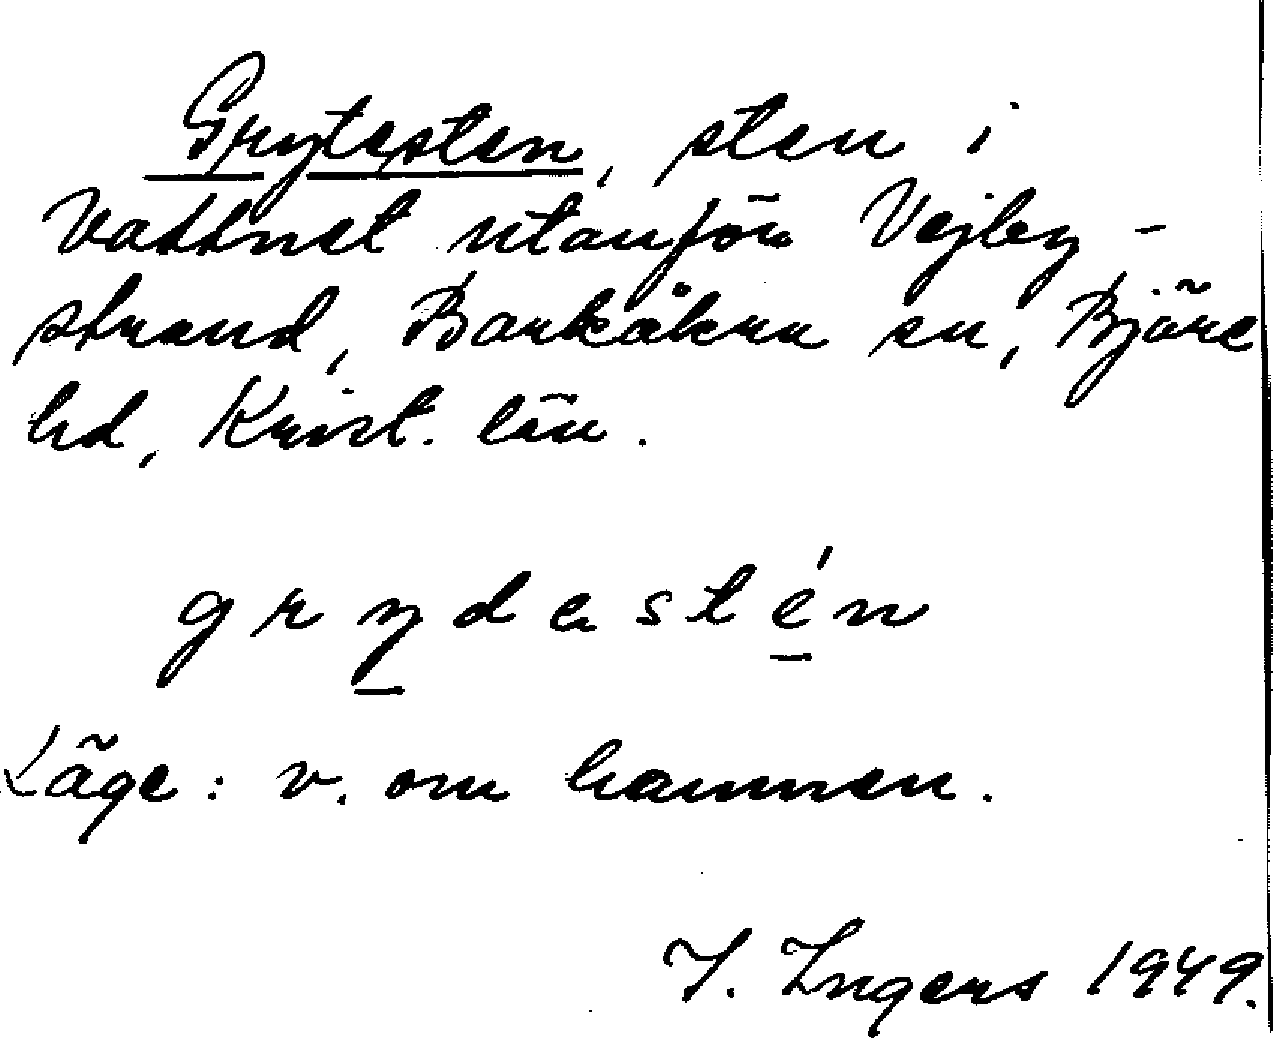 Grytesten, sten i
vattnet utanför Vejby-
strand, Barkåkra sn, Bjäre
hd, Krist. län.
grydestén
Läge: v. om hamnen.
I. Ingers 1949.